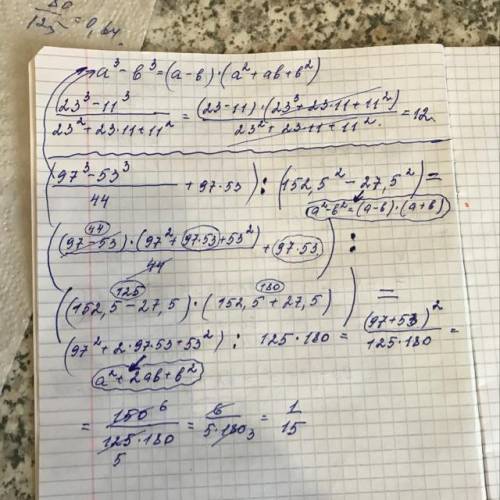 80/125 = 0,64
a³ - b³ = (a-b)·(a²+ab+b²)
(23³-11³)/(23²+23·11+11²) = ((23-11)·(23³+23·11+11²))/(23²+23·11+11²) = 12
((97³-53³)/44 + 97·53) : (152,5² - 27,5²) =
a²-b²=(a-b)·(a+b)
44
((97-53)·(97²+97·53+53²)/44 + 97·53) :
125 180
((152,5-27,5)·(152,5+27,5)) =
(97²+2·97·53+53²) : 125·180 = (97+53)²/(125·180) =
a²+2ab+b²
= 150 6/(125·180) = 6/(5·180) = 1/15
5 3